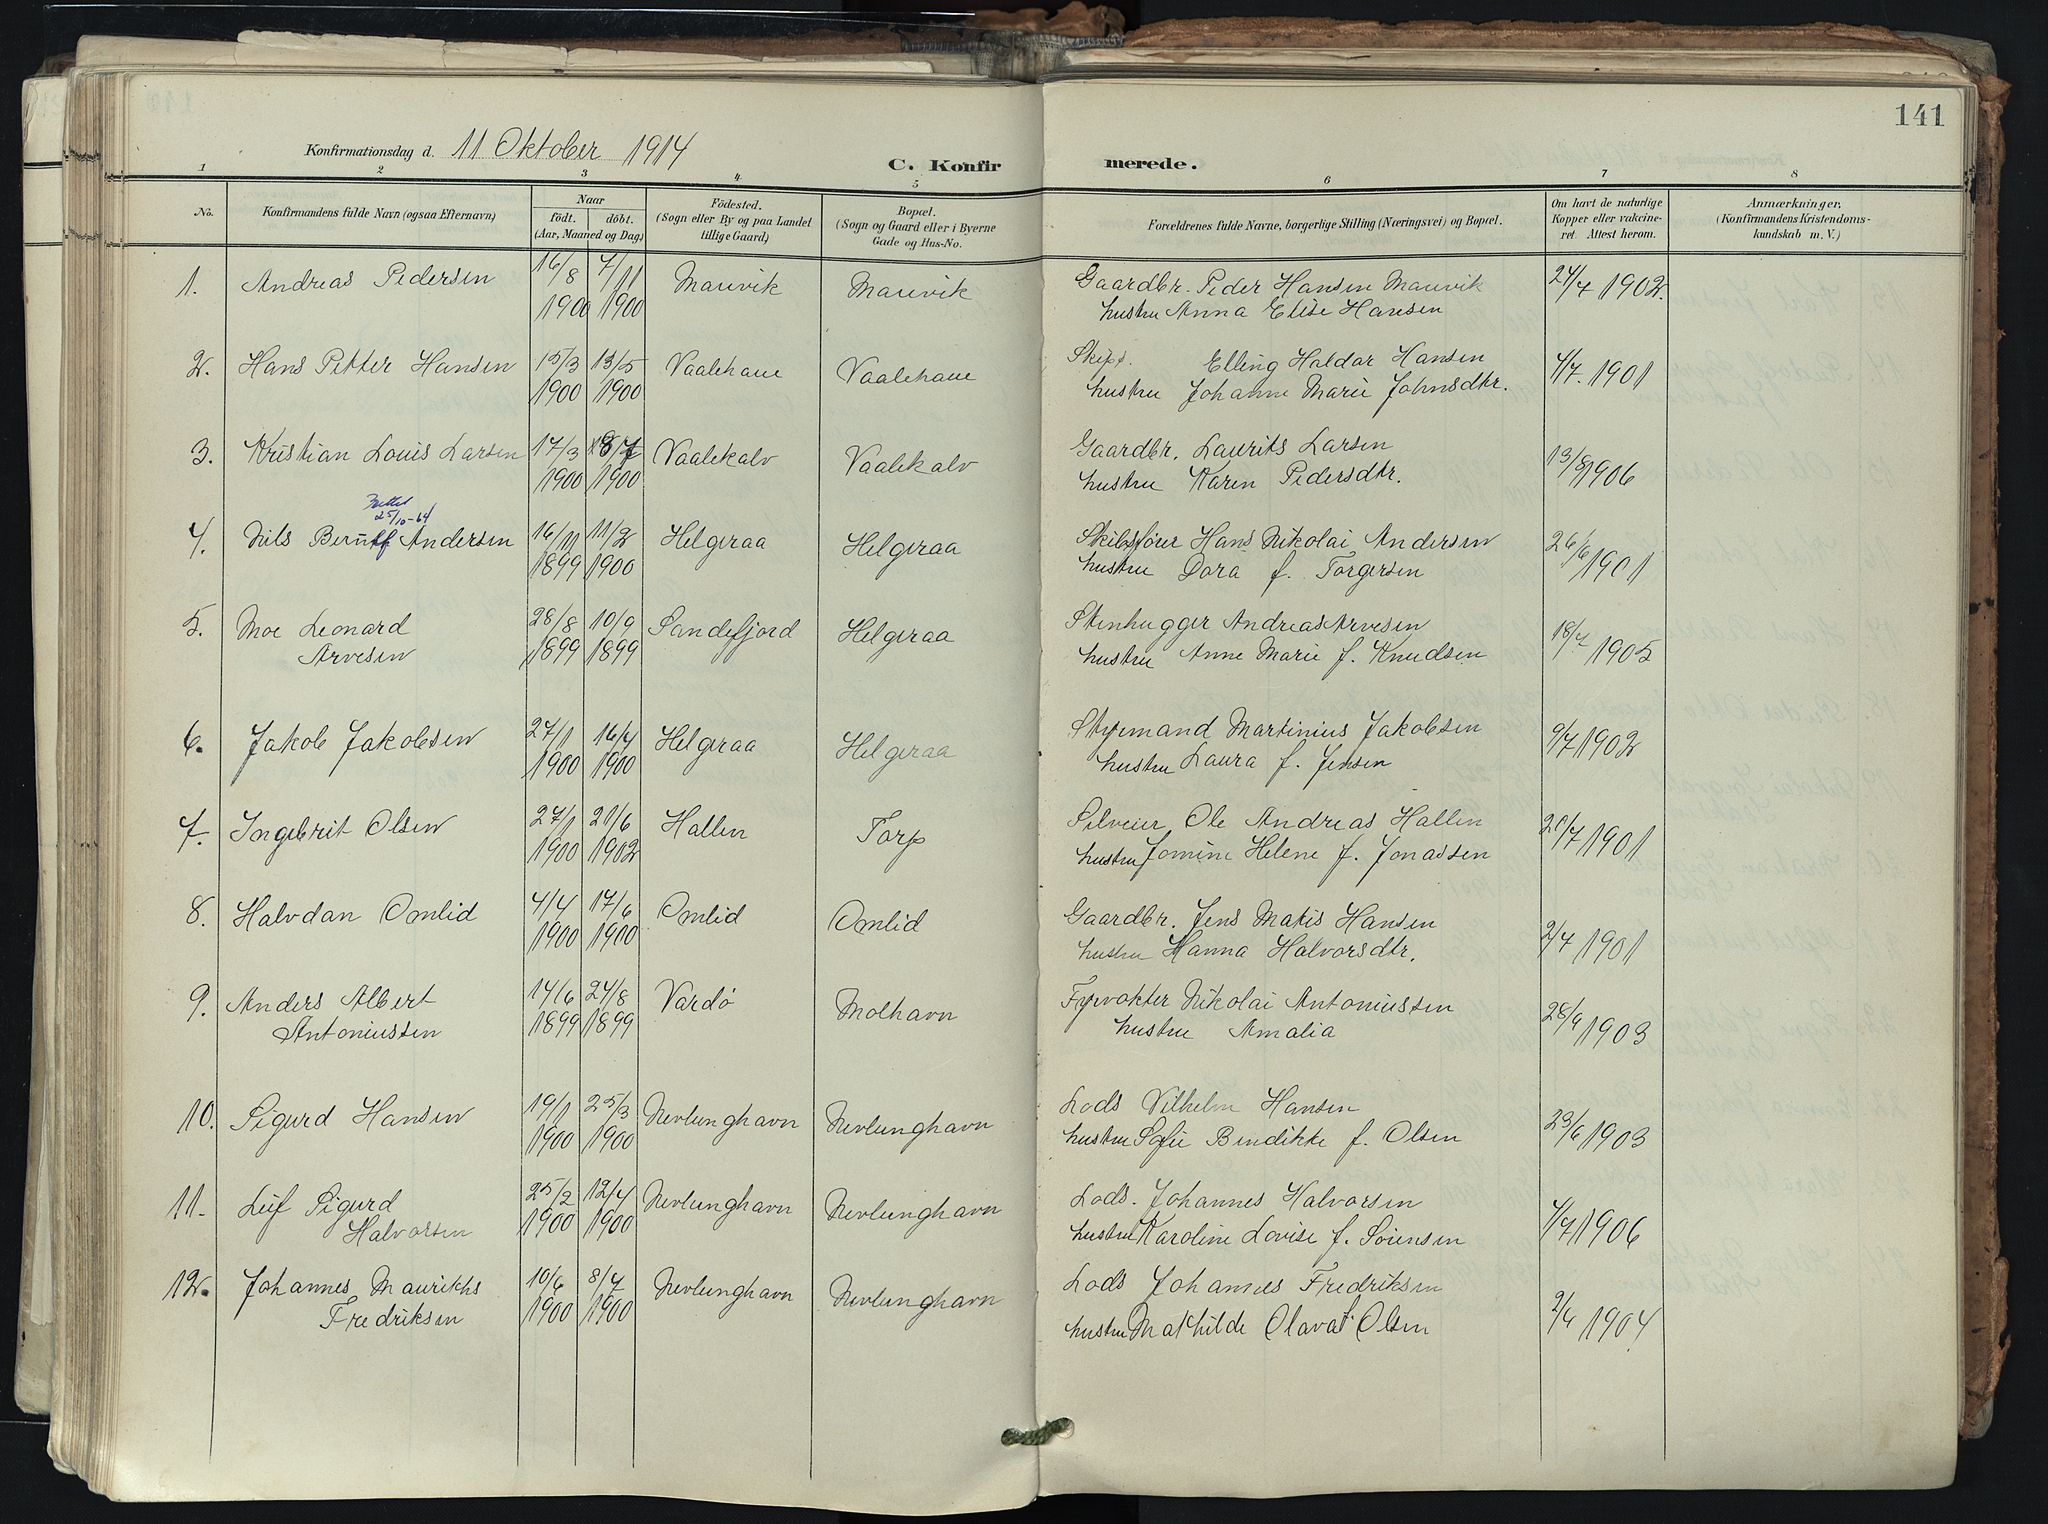 141
Konfirmationsdag d. 11 Oktober 1914
C. Konfirmerede.
1 2 3 4 5 6 7 8
No.
Konfirmandens fulde Navn (ogsaa Efternavn)
Naar
födt. döbt.
(Aar, Maaned og Dag)
Födested.
(Sogn eller By og paa Landet
tillige Gaard)
Bopæl.
(Sogn og Gaard eller i Byerne
Gade og Hus-No.
Forældrenes fulde Navne, borgerlige Stilling (Næringsvei) og Bopæl.
Om havt de naturlige
Kopper eller vakcine-
ret. Attest herom.
Anmærkninger,
(Konfirmandens Kristendoms-
kundskab m. V.)
1. Andreas Pedersen 16/8 1900 7/11 1900 Manvik Manvik Gaardbr. Peder Hansen Manvik 24/4 1902.
hustru Anna Elise Hansen
2. Hans Petter Hansen 15/3 1900 13/5 1900 Vaalehaue Vaalehaue Skipp. Elling Haldar Hansen 4/7. 1901
hustru Johanne Marie Johnsdtr.
3. Kristian Louis Larsen 17/3 1900 8/7 1900 Vaalekalv Vaalekalv Gaardbr. Laurits Larsen 13/8 1906
hustru Karen Pedersdtr.
25/10-64
4. Nils Berntf Andersen 16/11 1899 11/2 1900 Helgeraa Helgeraa Skibsfører Hans Nikolai Andersen 26/6 1901
hustru Dora f. Torgersen
5. Moe Leonard 28/8 1899 10/9 1899 Sandefjord Helgeraa Stenhugger Andreas Arvesen 18/7 1905
Arvesen hustru Anne Marie f. Knudsen
6. Jakob Jakobsen 27/1 1900 16/4 1900 Helgeraa Helgeraa Styrmand Martinius Jakobsen 9/7 1902
hustru Laura f. Jensen
7. Ingebrit Olsen 27/1 1900 21/6 1902 Hallen Torp Selveier Ole Andreas Hallen 21/7 1901
hustru Jomine Helene f. Jonassen
8. Halvdan Omlid 4/4 1900 17/6 1900 Omlid Omlid Gaardbr. Jens Matis Hansen 2/4 1901
hustru Hanna Halvorsdtr.
9. Anders Albert 14/6 1899 24/8 1899 Vardø Molhavn Fyrvokter Nikolai Antoniussen 28/9 1903
Antoniussen hustru Amalia
10. Sigurd Hansen 19/1 1900 25/3 1900 Nevlunghavn Nevlunghavn Lods Vilhelm Hansen 23/6 1903
hustru Sofie Bendikke f. Olsen
11. Leif Sigurd 25/2 1900 12/4 1900 Nevlunghavn Nevlunghavn Lods. Johannes Halvorsen 4/7 1906
Halvorsen hustru Karoline Lovise f. Sörensen
12. Johannes Maurikhs 10/6 1900 8/7 1900 Nevlunghavn Nevlunghavn Lods Johannes Fredriksen 2/6 1904
Fredriksen hustru Mathilde Olava f. Olsen